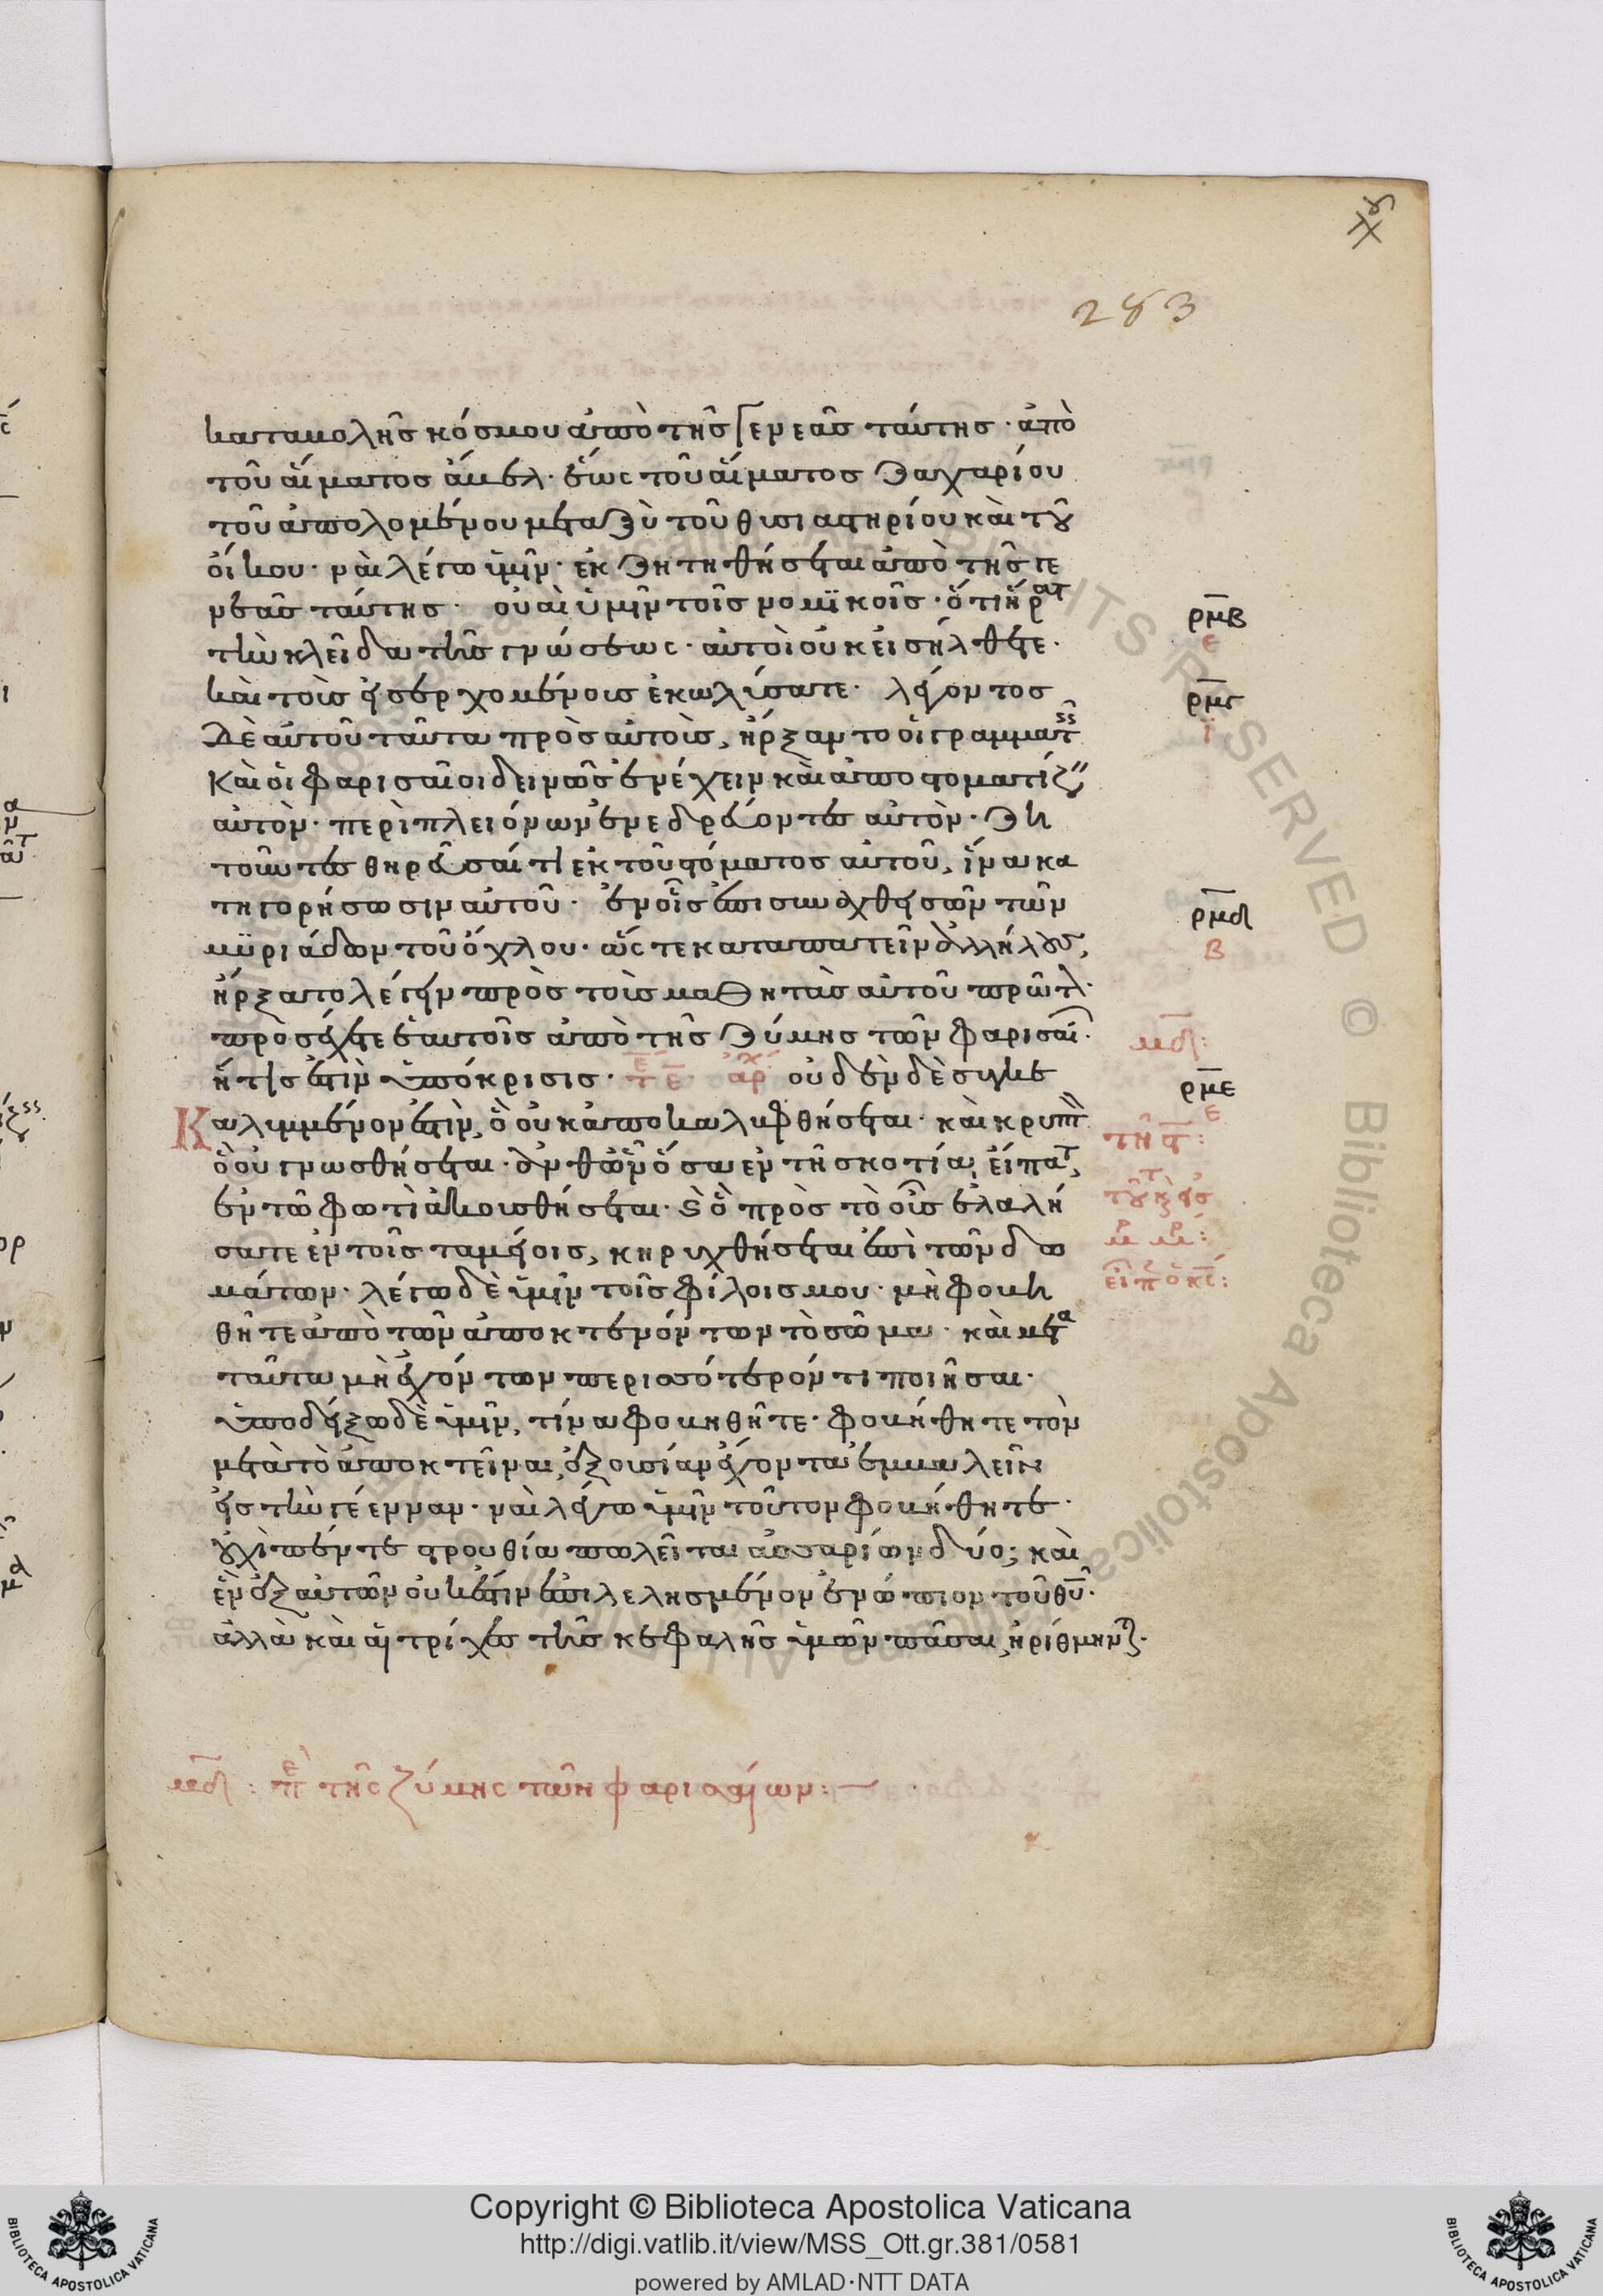 283
καταβολῆς κόσμου ἀπὸ τῆς γενεᾶς ταύτης · ἀπὸ
τοῦ αἵματος ἄβελ · ἕως τοῦ αἵματος ζαχαρίου
τοῦ ἀπολομένου μεταξὺ τοῦ θυσιαστηρίου καὶ τοῦ
οἴκου · ναὶ λέγω ὑμῖν · ἐκζητηθήσεται ἀπὸ τῆς γε
νεᾶς ταύτης · οὐαὶ ὑμῖν τοῖς νομϊκοῖς · ὅτι ἤρατ
τὴν κλεῖδα τῆς γνώσεως · αὐτοὶ οὐκ εἰσήλθετε ·
καὶ τοὺς εἰσερχομένους ἐκωλύσατε · λέγοντος
Δὲ αὐτοῦ ταῦτα πρὸς αὐτοὺς, ἤρξαντο οἱ γραμματ
Καὶ οἱ φαρισαῖοι δεινῶς ἐνέχειν καὶ ἀποστοματίζ
αὐτὸν · περὶ πλειόνων ἐνεδρεύοντες αὐτὸν · ζη
τοῦντες θηρεῦσαί τι ἐκ τοῦ στόματος αὐτοῦ, ἵνα κα
τηγορήσωσιν αὐτοῦ · ἐν οἷς ἐπισυναχθεισῶν τῶν
μϋριάδων τοῦ ὄχλου · ὥστε καταπατεῖν ἀλλήλους,
ἤρξατο λέγειν πρὸς τοὺς μαθητὰς αὐτοῦ πρῶτ ·
προσέχετε ἑαυτοῖς ἀπὸ τῆς ζύμης τῶν φαρισαί ·
ἥτις ἐστὶν ὑπόκρισις · τε αρχ οὐδὲν δὲ συγκε
Καλυμμένον ἐστὶν, ὃ οὐκ ἀποκαλυφθήσεται · καὶ κρυπτ
ὃ οὐ γνωσθήσεται · ἀνθ ὧν ὅσα ἐν τῆ σκοτία εἴπατ,
ἐν τῶ φωτὶ ἀκουσθήσεται · ϗ ὃ πρὸς τὸ οὖς ἐλαλή
σατε ἐν τοῖς ταμείοις, κηρυχθήσεται ἐπὶ τῶν δω
μάτων · λέγω δὲ ὑμῖν τοῖς φίλοις μου · μὴ φοβη
θῆτε ἀπὸ τῶν ἀποκτενόντων τὸ σῶμα · καὶ μετα
ταῦτα μὴ ἐχόντων περισσότερόν τι ποιῆσαι ·
ὑποδείξω δὲ ὑμῖν, τίνα φοβηθῆτε · φοβήθητε τὸν
μετὰ τὸ ἀποκτεῖναι, ἐξουσίαν ἔχοντα ἐμβαλεῖν
εἰς τὴν γέενναν · ναὶ λέγω ὑμῖν τοῦτον φοβήθητε ·
οὐχὶ πέντε στρουθία πωλεῖται ἀσσαρίων δύο; καὶ
ἓν ἐξ αὐτῶν οὐκ ἔστιν ἐπιλελησμένον ἐνώπιον τοῦ θυ ·
ἀλλὰ καὶ αἱ τρίχες τῆς κεφαλῆς ὑμῶν πᾶσαι, ἠρίθμηντ ·
ρμβ
ε
ρμγ
ι
ρμδ
β
μδ:
ρμε
ε
μδ : πε τῆς ζύμης τῶν φαρισαίων :
Copyright © Biblioteca Apostolica Vaticana
http://digi.vatlib.it/view/MSS_Ott.gr.381/0581
powered by AMLAD·NTT DATA
BIBLIOTECA APOSTOLICA VATICANA
BIBLIOTECA APOSTOLICA VATICANA